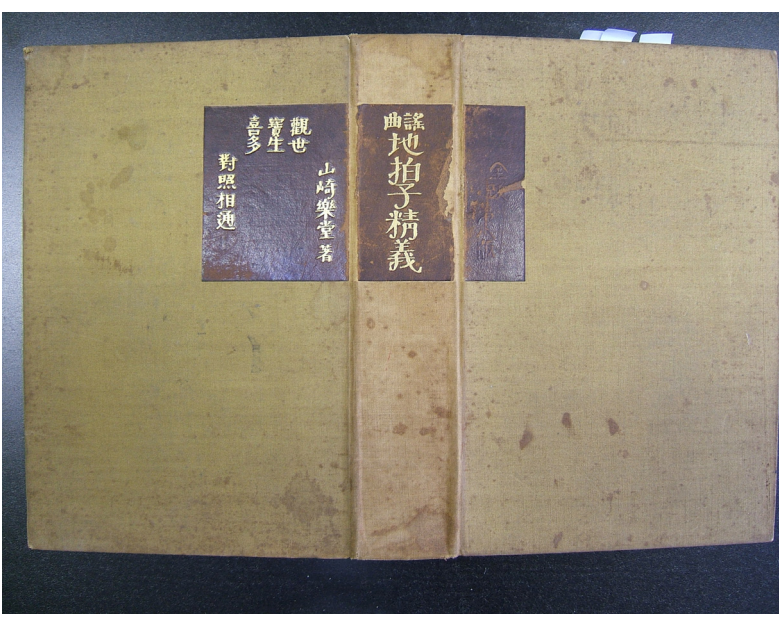 謡曲
地拍子精義
山崎樂堂著
觀世
寶生
喜多
對照相通